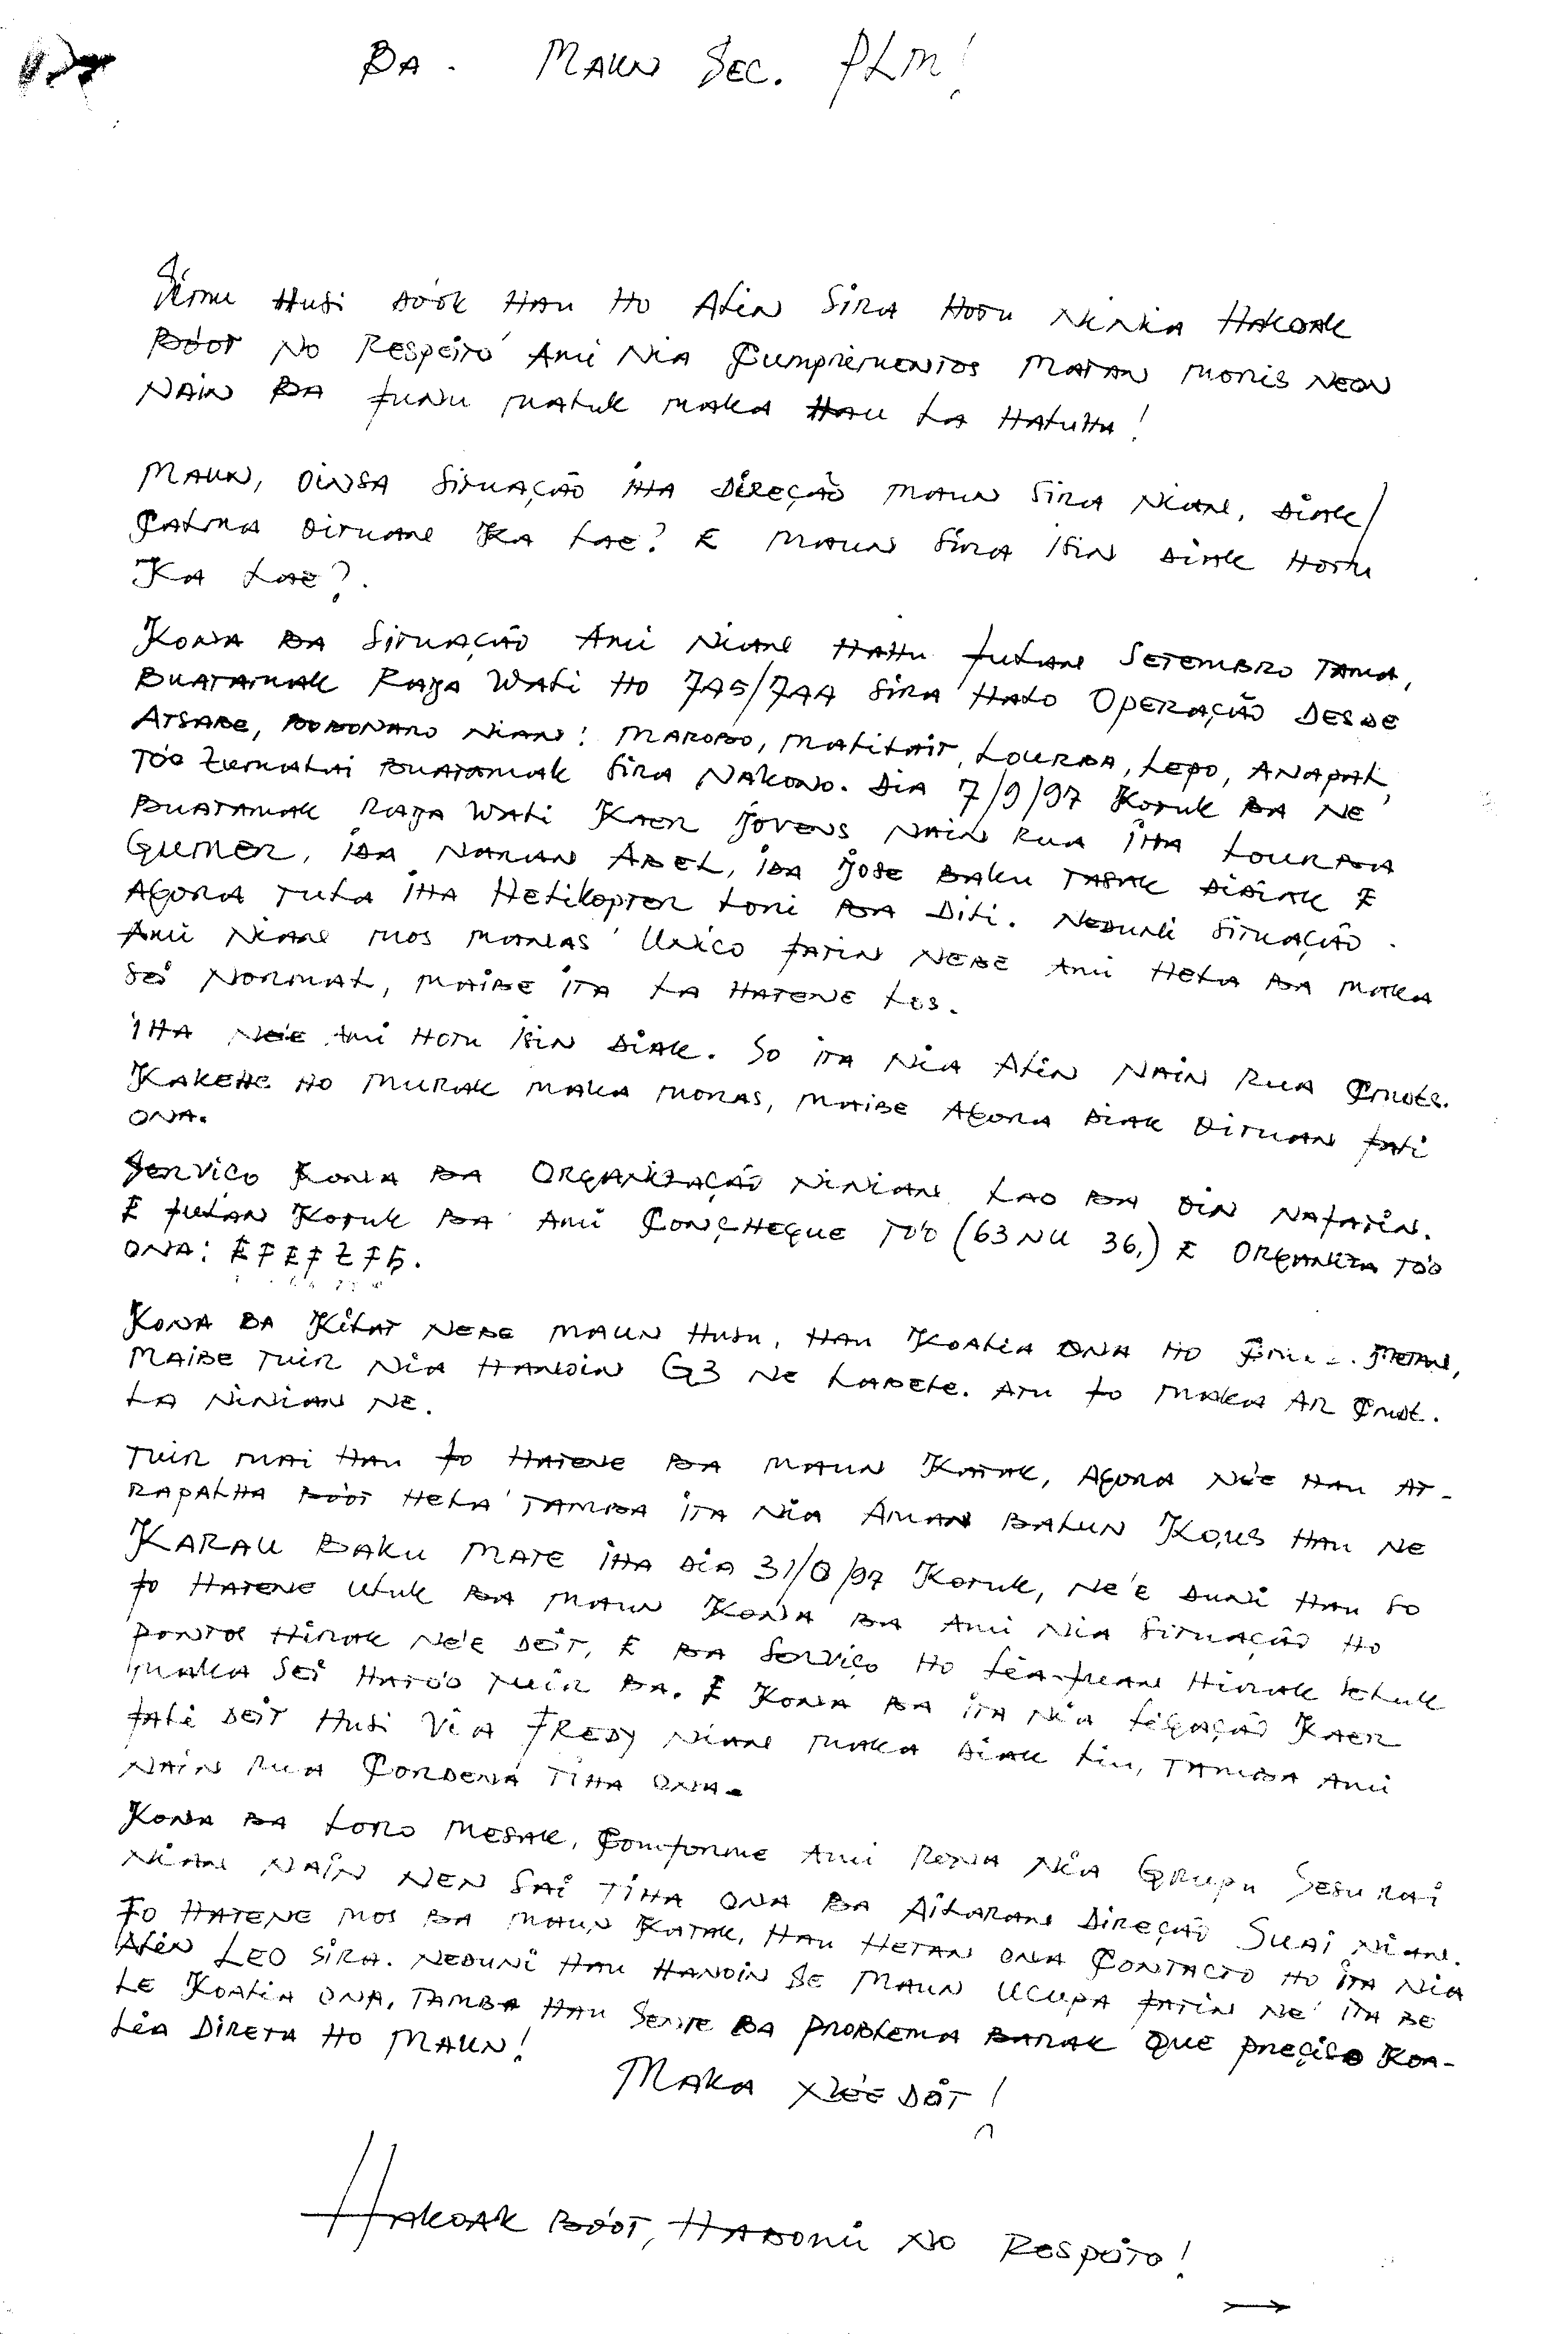 BA. MAUN SEC. PLM!
SIMU HUSI DÓOK HAU HO ALIN SIRA HOTU NINIA HAKOAK
BÓOT NO RESPEITO AMI NIA CUMPRIMENTOS MATAN MORIS NEON
NAIN BA FUNU MALUK MAKA HAU LA HALUHA!
MAUN, OINSA SITUAÇÃO IHA DIREÇÃO MAUN SIRA NIAN, DIAK/
CALMA OITUAN KA LAE? E MAUN SIRA ISIN DIAK HOTU
KA LAE?.
KONA BA SITUAÇÃO AMI NIAN HAHU FULAN SETEMBRO TAMA,
BUATAMAK RAJA WALI HO 745/744 SIRA HALO OPERAÇÃO DESDE
ATSABE, BOBONARO NIAN: MAROBO, MALILAIT, LOURBA, LEPO, ANAPAL,
TÓO ZUMALAI BUATAMAK SIRA NAKONO. DIA 7/9/97 KOTUK BA NE
BUATAMAK RAJA WALI KAER JOVENS NAIN RUA IHA LOURBA
GUMER, IDA NARAN ABEL, IDA JOSE BAKU TASAK DIDIAK E
AGORA TULA IHA HELIKOPTER LORI BA DILI. NEDUNI SITUAÇÃO
AMI NIAN MOS MANAS UNICO FATIN NEBE AMI HELA BA MAKA
SEI NORMAL, MAIBE ITA LA HATENE LOS.
IHA NÉE AMI HOTU ISIN DIAK. SO ITA NIA ALIN NAIN RUA CMDTS.
KAKEHE HO MURAK MAKA MORAS, MAIBE AGORA DIAK OITUAN FALI
ONA.
SERVICO KONA BA ORGANIZAÇÃO NINIAN LAO BA OIN NAFATIN.
E FULAN KOTUK BA AMI CONÇHEGUE TÓO (63 NU 36,) E ORGANIZA TÓO
ONA:
KONA BA KILAT NEBE MAUN HUSU, HAU KOALIA ONA HO METAN,
MAIBE TUIR NIA HANOIN G3 NE LABELE. ATU FO MAKA AR CMDT.
LA NINIAN NE.
TUIR MAI HAU FO HATENE BA MAUN KATAK, AGORA NÉE HAU AT-
RAPALHA BÓOT HELA TAMBA ITA NIA AMAN BALUN KOUS HAU NE
KARAU BAKU MATE IHA DIA 31/8/97 KOTUK, NÉE DUNI HAU SO
FO HATENE ULUK BA MAUN KONA BA AMI NIA SITUAÇÃO HO
PONTOS HIRAK NÉE DEIT, E BA SERVIÇO HO LIA-FUAN HIRAK SELUK
MAKA SEI HATÓO TUIR BA. E KONA BA ITA NIA LIGAÇÃO KAER
FALI DEIT HUSI VIA FREDY NIAN MAKA DIAK LIU, TAMBA AMI
NAIN RUA CORDENA TIHA ONA.
KONA BA LORO MESAK, COMFORME AMI RONA NIA GRUPU SESURAI
NIAN NAIN NEN SAI TIHA ONA BA AILARAN DIREÇÃO SUAI NIAN.
FO HATENE MOS BA MAUN KATAK, HAU HETAN ONA CONTACTO HO ITA NIA
ALIN LEO SIRA. NEDUNI HAU HANOIN SE MAUN UCUPA FATIN NE ITA BE
LE KOALIA ONA, TAMBA HAU SENTE BA PROBLEMA BARAK QUE PRECISO KOA-
LIA DIRETA HO MAUN!
MAKA NÉE DEIT!
HAKOAK BÓOT, HADOMI NO RESPEITO!